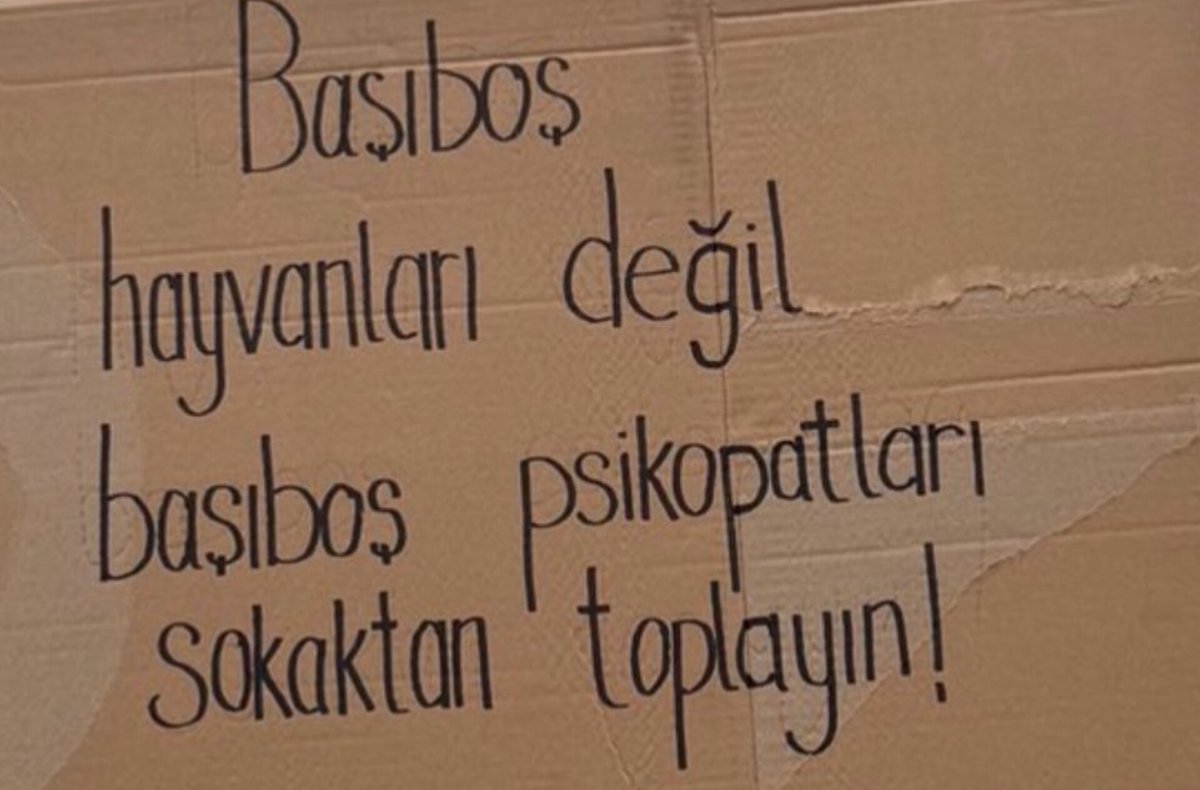 Başıboş
hayvanları değil
başıboş psikopatları
sokaktan toplayın!